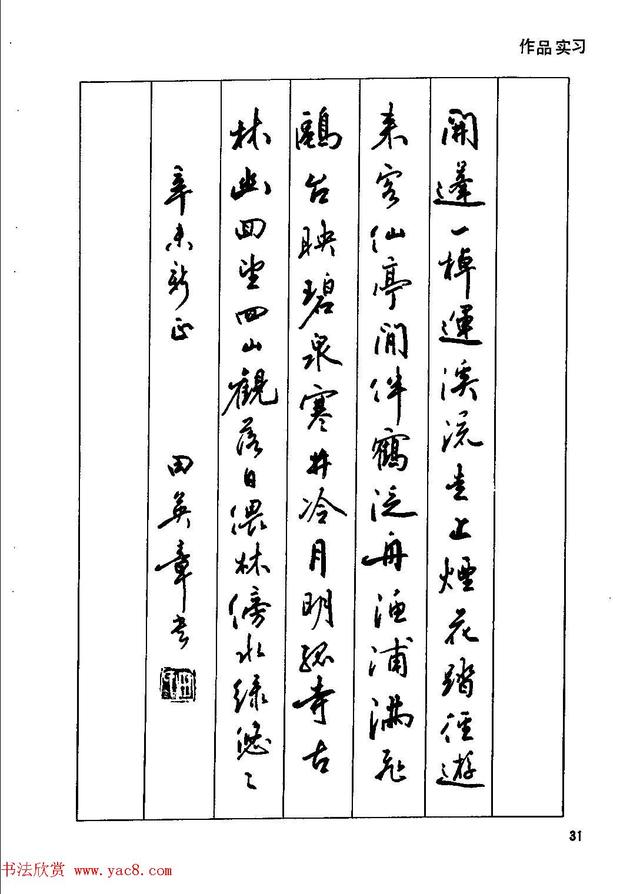 作品实习
開篷一棹遠溪流走上煙花踏徑遊
來客仙亭閒伴鶴泛舟漁浦滿飛
鷗台映碧泉寒井冷月明孤寺古
林幽回望四山觀落日偎林傍水綠悠〻
辛未新正 田英章书
31
书法欣赏 www.yac8.com